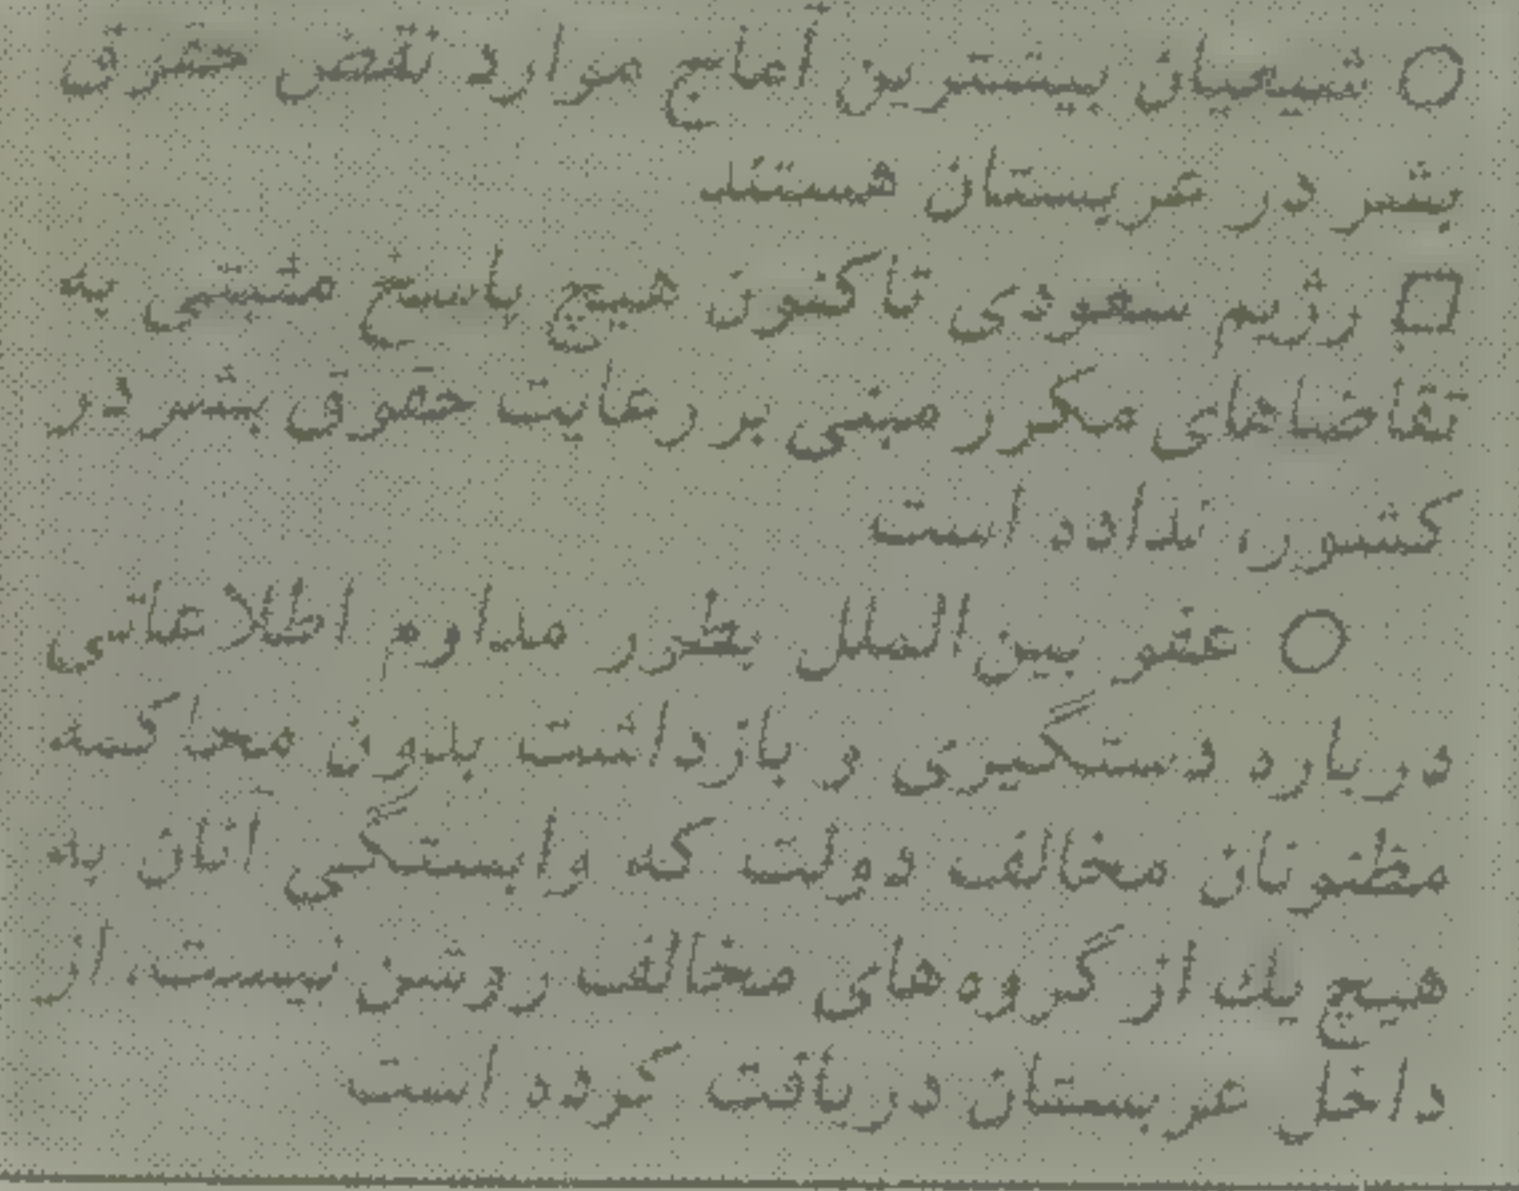 ○ شیعیان بیشترین آماج موارد نقض حقوق
بشر در عربستان هستند
□ رژیم سعودی تاکنون هیچ پاسخ مثبتی به
تقاضاهای مکرر مبنی بر رعایت حقوق بشر در
کشور، نداده است
○ عفو بین‌الملل بطور مداوم اطلاعاتی
درباره دستگیری و بازداشت بدون محاکمه
مظنونان مخالف دولت که وابستگی آنان به
هیچ یک از گروه‌های مخالف روشن نیست، از
داخل عربستان دریافت کرده است